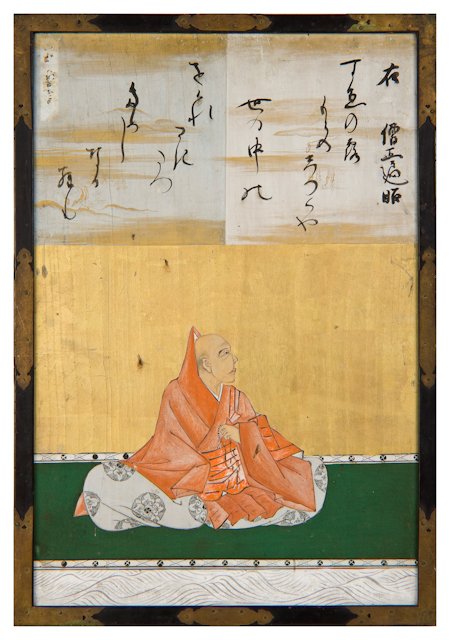 右　僧正遍昭
すゑの露
もとのしつくや
世の中の
をくれ
さきたつ
ためし
なる
らむ